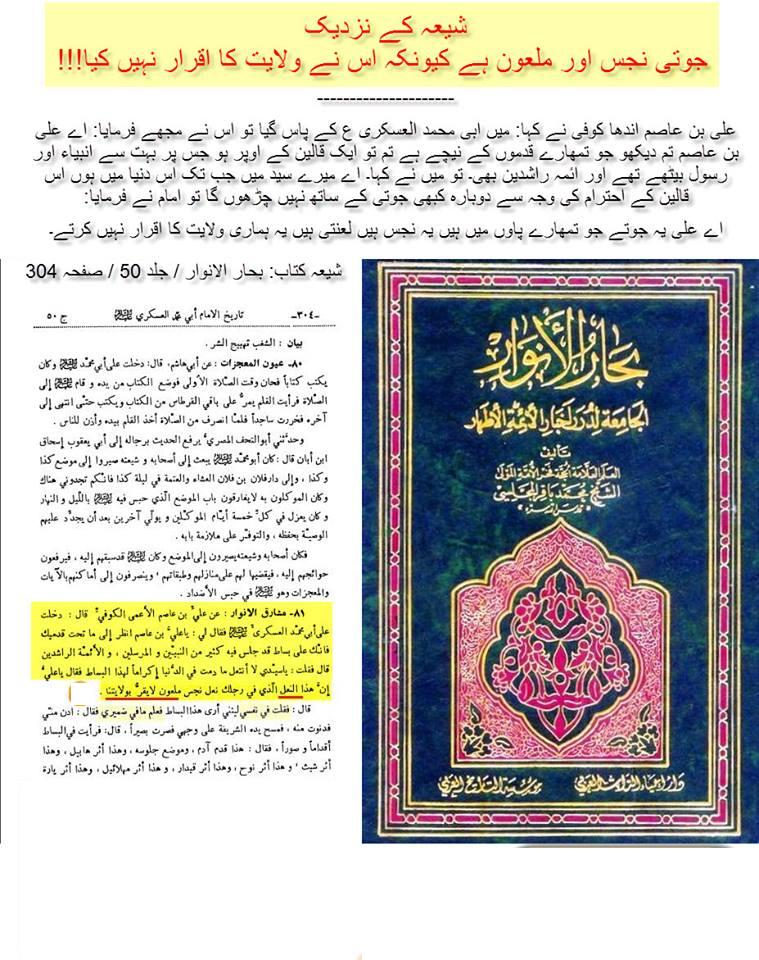 شیعہ کے نزدیک
جوتی نجس اور ملعون ہے کیونکہ اس نے ولایت کا اقرار نہیں کیا!!!
---------------------
علی بن عاصم اندھا کوفی نے کہا: میں ابی محمد العسکری ع کے پاس گیا تو اس نے مجھے فرمایا: اے علی
بن عاصم تم دیکھو جو تمھارے قدموں کے نیچے ہے تم تو ایک قالین کے اوپر ہو جس پر بہت سے انبیاء اور
رسول بیٹھے تھے اور ائمہ راشدین بھی۔ تو میں نے کہا۔ اے میرے سید میں جب تک اس دنیا میں ہوں اس
قالین کے احترام کی وجہ سے دوبارہ کبھی جوتی کے ساتھ نہیں چڑھوں گا تو امام نے فرمایا:
اے علی یہ جوتے جو تمھارے پاوں میں ہیں یہ نجس ہیں لعنتی ہیں یہ ہماری ولایت کا اقرار نہیں کرتے۔
شیعہ کتاب: بحار الانوار / جلد 50 / صفحہ 304
-٣٠٤- تاريخ الامام أبي محمد العسكري ج ٥٠
بيان : الشغب تهييج الشر .
٨٠- عيون المعجزات : عن أبي هاشم، قال: دخلت على أبي محمد وكان
يكتب كتاباً فحان وقت الصلاة الأولى فوضع الكتاب من يده و قام إلى
الصلاة فرأيت القلم يمر على باقي القرطاس من الكتاب ويكتب حتى انتهى إلى
آخره فخررت ساجداً فلما انصرف من الصلاة أخذ القلم بيده وأذن للناس .
وحدثني أبوالتحف المصري يرفع الحديث برجاله إلى أبي يعقوب إسحاق
ابن أبان قال : كان أبو محمد يبعث إلى أصحابه و شيعته صيروا إلى موضع كذا
وكذا ، وإلى دارفلان بن فلان العشاء والعتمة في ليلة كذا فانكم تجدوني هناك
وكان الموكلون به لايفارقون باب الموضع الذي حبس فيه بالليل و النهار
وكان يعزل في كل خمسة أيام الموكلين و يولي آخرين بعد أن يجدد عليهم
الوصية بحفظه ، والتوفر على ملازمة بابه .
فكان أصحابه وشيعته يصيرون إلى الموضع وكان قدسبقهم إليه ، فيرفعون
حوائجهم إليه ، فيقضيها لهم على منازلهم وطبقاتهم ، وينصرفون إلى أماكنهم بالآيات
والمعجزات وهو في حبس الأضداد .
٨١- مشارق الانوار : عن علي بن عاصم الأعمى الكوفي قال : دخلت
على أبي محمد العسكري فقال لي : ياعلي بن عاصم انظر إلى ما تحت قدميك
فانك على بساط قد جلس فيه كثير من النبيين و المرسلين ، و الأئمة الراشدين
قال فقلت : ياسيدي لا أنتعل ما دمت في الدنيا إكراماً لهذا البساط فقال ياعلي
إن هذا النعل الذي في رجلك نعل نجس ملعون لايقر بولايتنا .
قال : فقلت في نفسي ليتني أرى هذا البساط فعلم مافي ضميري فقال : ادن مني
فدنوت منه ، فمسح يده الشريفة على وجهي فصرت بصيراً ، قال: فرأيت في البساط
أقداماً و صوراً ، فقال : هذا قدم آدم ، وموضع جلوسه ، وهذا أثر هابيل ، وهذا
أثر شيث ، و هذا أثر نوح ، وهذا أثر قيدار ، وهذا أثر مهلائيل ، وهذا أثر يارة
بحار الأنوار
الجامعة لدرر أخبار الأئمة الأطهار
تأليف
العلم العلامة الحجة فخر الأمة المولى
الشيخ محمد باقر المجلسي
دار إحياء التراث العربي
مؤسسة التاريخ العربي